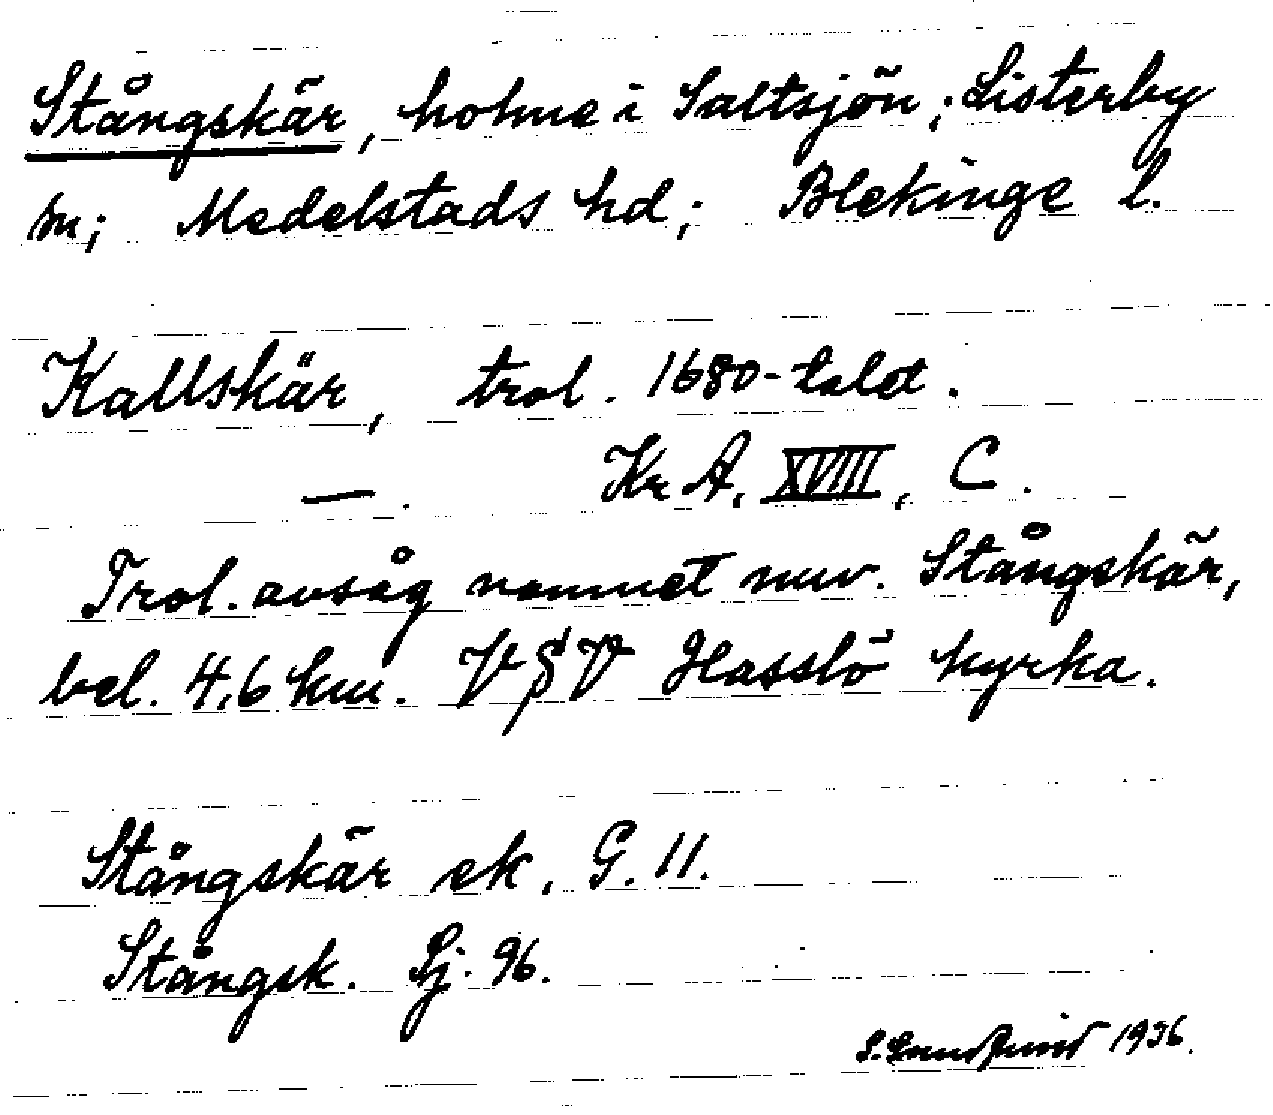 Stångskär, holme i Saltsjön; Listerby
sn; Medelstads hd; Blekinge l.
Kallskär, trol. 1680-talet.
—. Kr A. XVIII, C.
Trol. avsåg namnet nuv. Stångskär,
bel. 4,6 km. V§V Hasslö kyrka.
Stångskär ek. G. 11.
Stångsk. Sj. 96.
S. 1936.